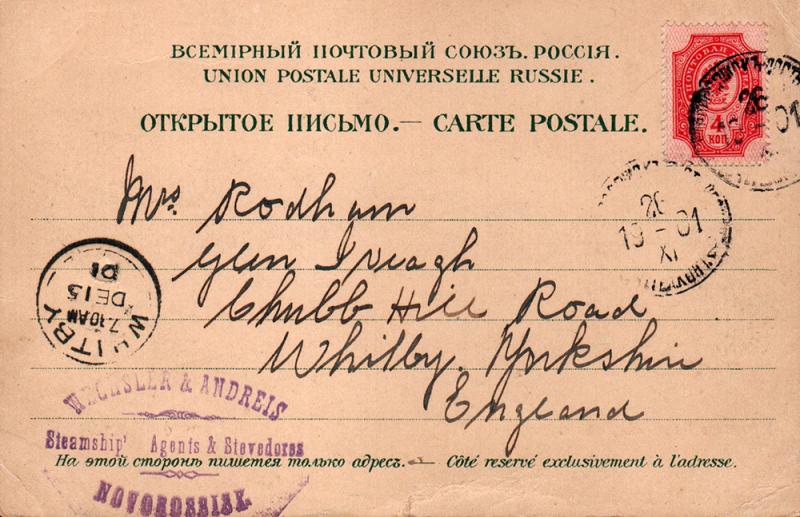 ВСЕМІРНЫЙ ПОЧТОВЫЙ СОЮЗЪ. РОССІЯ.
UNION POSTALE UNIVERSELLE RUSSIE.
ОТКРЫТОЕ ПИСЬМО. — CARTE POSTALE.
ПОЧТОВАЯ
4
КОП
26
01
26
19 - 01
XI
Mrs Rodham
Glen Iveagh
Chubb Hill Road
Whitby. Yorkshire
England
WHITBY
7.10 AM
DE 15
01
WECHSLER & ANDREIS
Steamship Agents & Stevedores
NOVOROSSISK
На этой сторонѣ пишется только адресъ. — Côté réservé exclusivement à l'adresse.